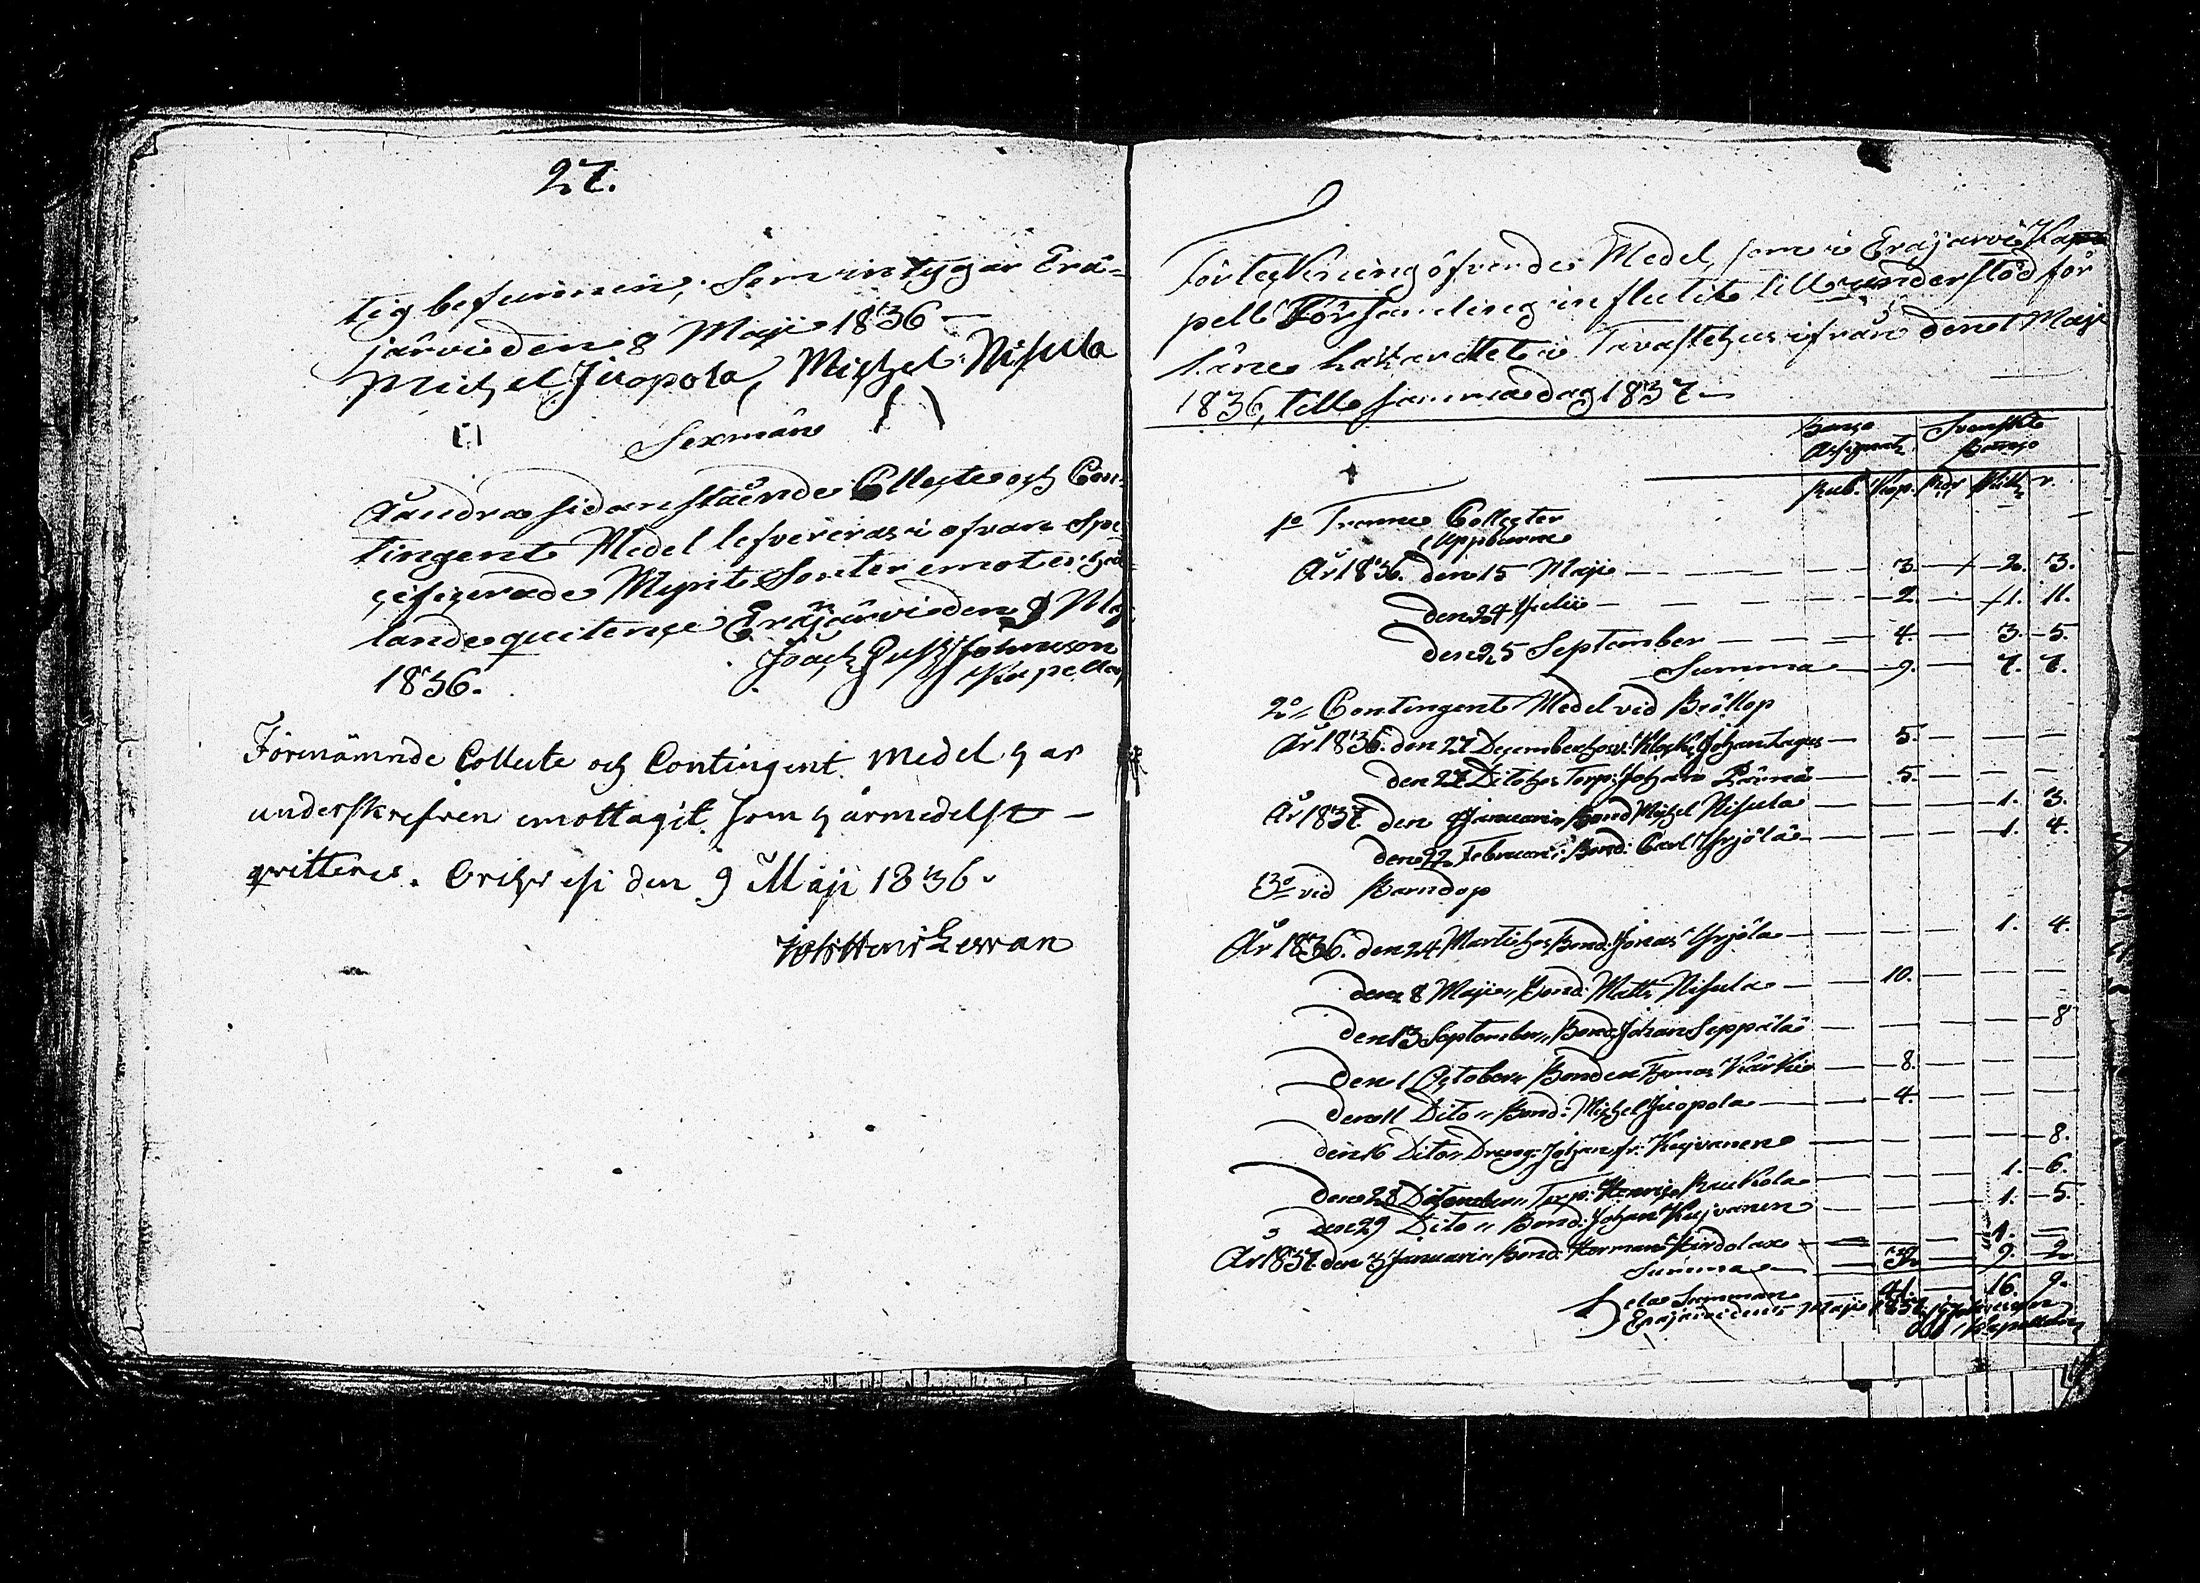 27.
tig befunnen, Som intygar Erä=
järvi den 8 Maji 1836 —
Michel Juopola, Michel Nisula
Sexmän
Å andra sidan stående Collecte och Con-
tingent Medel lefvereras i ofvan Spe
cificerade Mynt Sorter emot
lande quitence Eräjärvi den 8 Maj
1836. Johnsson
Kapellan
Förnämnde Collecte och Contingent Medel har
underskrefven emottagit som härmedelst —
qvitteras. Orihvesi den 9 Maji 1836.
Förteckning öfver de Medel, som i Eräjärvi Kap
pell Församling influtit till understöd för
Läne Lazarettet i Tavastehus ifrån den 1 Maji
1836, till samma dag 1837 —
Banco Assignat. Svenskt Banco
Rub. Kop. Rdr Skill. r.
1o Trenne Collecter
Uppburne
År 1836. den 15 Maji — 3 — 2. 3.
den 24 Julii — 2. — 1. 11.
den 25 September — 4. — 3. 5.
Summa — 9. — 7. 7.
2o Contingent Medel vid Bröllop
År 1836. den 27 December hos Klock. Johan — 5.
den 27 Dito hos Torp. Johan — 5.
År 1837 den Januari Bond Michel Nisula — 1. 3.
den 22 Februari Bond: Carl Yrjölä — 1. 4.
3o vid Barndop
År 1836. den 24 Martii hos Bond: Jonas Yrjölä — 1. 4.
den 8 Maji Bond: Matts Nisula — 10.
den 13 September Bond: Johan Seppälä — 8
den 1 October Bonden Thomas Kärki — 8.
den 11 Dito Bond: Michel Juopola — 4.
den 16 Dito Dreng: Johan fr: Kujvanen — 8.
den 28 Torp: Henric Raukola — 1. 6.
den 29 Dito Bond: Johan Kujvanen — 1. 5
År 1837 den 3 Januari Bond: Herman Hirdolax — 1. —
Summa — 32 — 9. 2
Hela Summan — 41. — 16. 9.
Eräjärvi den 5 Maji 1837.
Kapellan